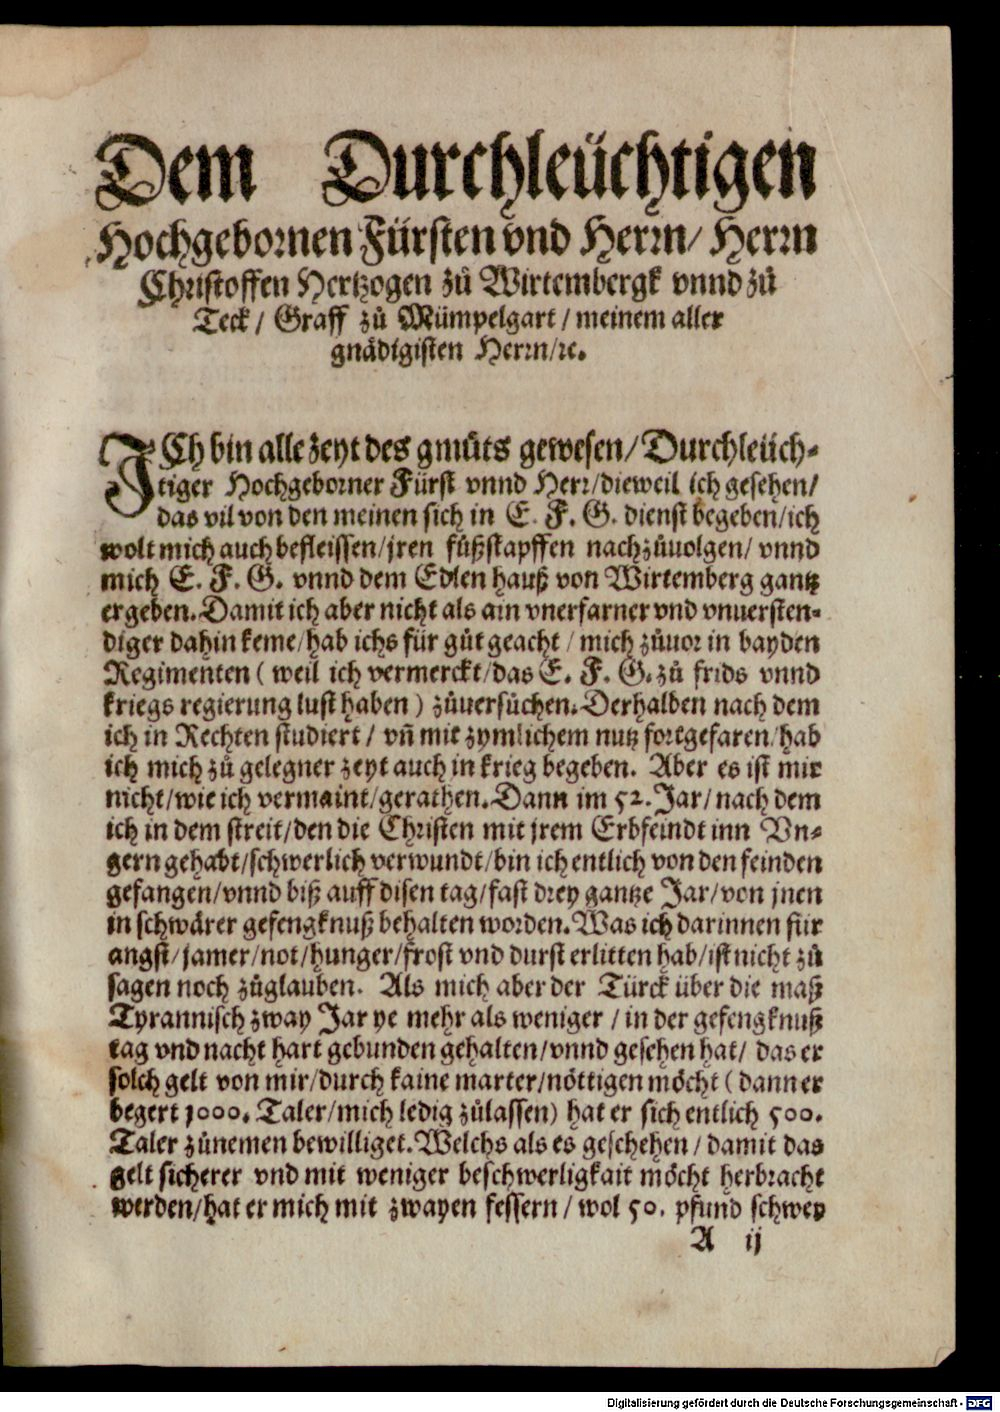 Dem Durchleüchtigen
Hochgebornen Fürsten vnd Herrn/ Herrn
Christoffen Hertzogen zů Wirtembergk vnnd zů
Teck/ Graff zů Mümpelgart/ meinem aller
gnädigisten Herrn/ꝛc.
ICh bin alle zeyt des gmůts gewesen/ Durchleüch-
tiger Hochgeborner Fürst vnnd Herr/dieweil ich gesehen/
das vil von den meinen sich in E. F. G. dienst begeben/ich
wolt mich auch befleissen/jren fůßstapffen nachzůuolgen/ vnnd
mich E. F. G. vnnd dem Edlen hauß von Wirtemberg gantz
ergeben. Damit ich aber nicht als ain vnerfarner vnd vnuersten-
diger dahin keme/hab ichs für gůt geacht / mich zůuor in bayden
Regimenten ( weil ich vermerckt/das E. F. G. zů frids vnnd
kriegs regierung lust haben ) zůuersůchen. Derhalden nach dem
ich in Rechten studiert / vñ mit zymlichem nutz fortgefaren/hab
ich mich zů gelegner zeyt auch in krieg begeben. Aber es ist mir
nicht/wie ich vermaint/gerathen. Dann im 52. Jar/ nach dem
ich in dem streit/den die Christen mit jrem Erbfeindt inn Vn-
gern gehabt/schwerlich verwundt/bin ich entlich von den feinden
gefangen/vnnd biß auff disen tag/fast drey gantze Jar/von jnen
in schwärer gefengknuß behalten worden. Was ich darinnen für
angst/jamer/not/hunger/frost vnd durst erlitten hab/ist nicht zů
sagen noch zůglauben. Als mich aber der Türck über die maß
Tyrannisch zway Jar ye mehr als weniger / in der gefengknuß
tag vnd nacht hart gebunden gehalten/vnnd gesehen hat/ das er
solch gelt von mir/durch kaine marter/nöttigen möcht ( dann er
begert 1000. Taler/mich ledig zůlassen) hat er sich entlich 500.
Taler zůnemen bewilliget. Welchs als es geschehen / damit das
gelt sicherer vnd mit weniger beschwerligkait möcht herbracht
werden/hat er mich mit zwayen fessern / wol 50. pfund schwer
A ij
Digitalisierung gefördert durch die Deutsche Forschungsgemeinschaft - DFG